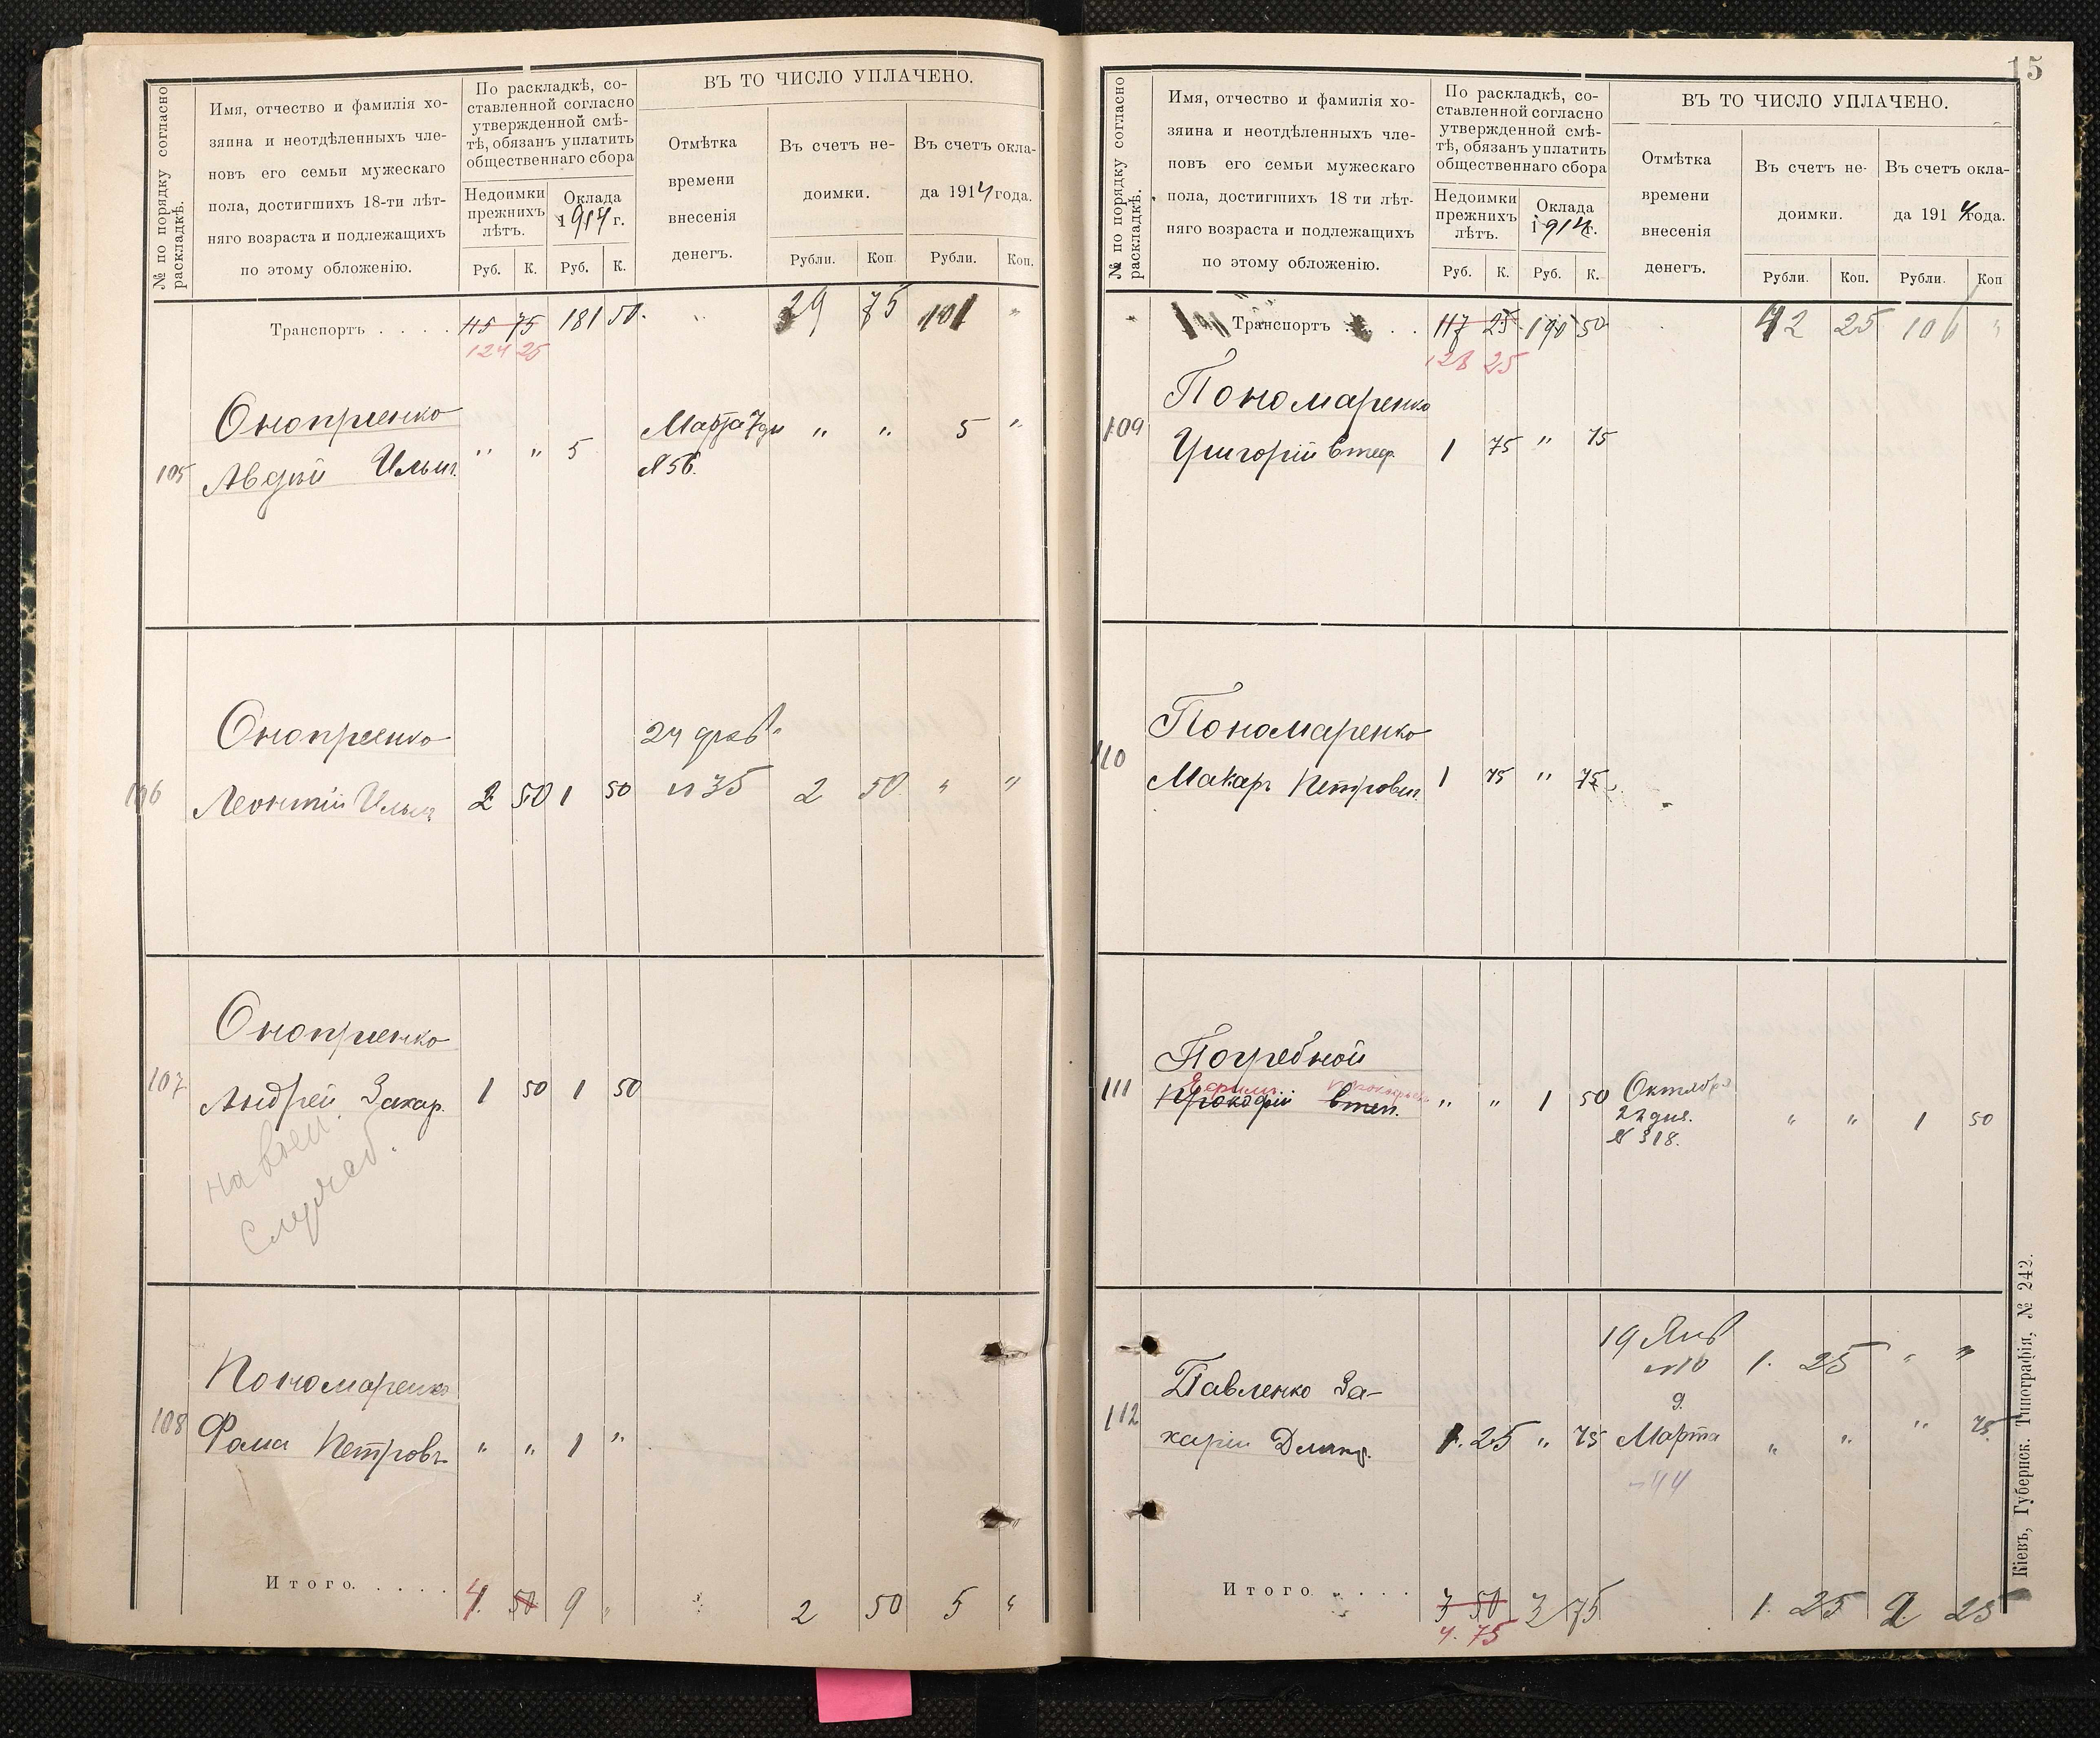 № по порядку согласно
раскладкѣ.
Имя, отчество и фамилія хо-
зяина и неотдѣленныхъ чле-
новъ его семьи мужескаго
пола, достигшихъ 18-ти лѣт-
няго возраста и подлежащихъ
по этому обложенію.
По раскладкѣ, со-
ставленной согласно
утвержденной смѣ-
тѣ, обязанъ уплатить
общественнаго сбора
Недоимки
прежнихъ
лѣтъ.
Оклада
1914 г.
Руб. К. Руб. К.
ВЪ ТО ЧИСЛО УПЛАЧЕНО.
Отмѣтка
времени
внесенія
денегъ.
Въ счетъ не-
доимки.
Въ счетъ окла-
да 1914 года.
Рубли. Коп. Рубли. Коп.
Транспортъ . . . . 115 75 181 50. 29 75 101 "
124 25
Онопріенко
105 Авдѣй Ильич. " " 5 Марта 7 дн " " 5 "
№ 56.
Онопріенко 24 февр.
106 Леонтій Ильич 2 50 1 50 № 35 2 50 " "
Онопріенко
107 Андрей Захар. 1 50 1 50
на воен.
службѣ.
Пономаренко
108 Фома Петровъ " " 1 "
Итого. . . . . 4. 50 9 " 2 50 5 "
15
№ по порядку согласно
раскладкѣ.
Имя, отчество и фамилія хо-
зяина и неотдѣленныхъ чле-
новъ его семьи мужескаго
пола, достигшихъ 18 ти лѣт-
няго возраста и подлежащихъ
по этому обложенію.
По раскладкѣ, со-
ставленной согласно
утвержденной смѣ-
тѣ, обязанъ уплатить
общественнаго сбора
Недоимки
прежнихъ
лѣтъ.
Оклада
1914 г.
Руб. К. Руб. К.
ВЪ ТО ЧИСЛО УПЛАЧЕНО.
Отмѣтка
времени
внесенія
денегъ.
Въ счетъ не-
доимки.
Въ счетъ окла-
да 1914 года.
Рубли. Коп. Рубли. Коп
Транспортъ . . . . 117 25 190 50 42 25 106 "
128 25
Пономаренко
109 Григорій Стеф. 1 75 " 75
Пономаренко
110 Макаръ Петрович. 1 75 " 75
Погребной
Ефимъ Прокофьев
111 Прокофій Степ. " " 1 50 Октября
22 дня. " " 1 50
№ 318.
19 Янв
№ 10 1. 25 " "
Павленко За-
9
112 харій Дмитр. 1. 25 " 75 Марта " " " 75
№ 44
Итого . . . . . 3 50 3 75 1. 25 2 25
4. 75
Кіевъ, Губернск. Типографія, № 242.